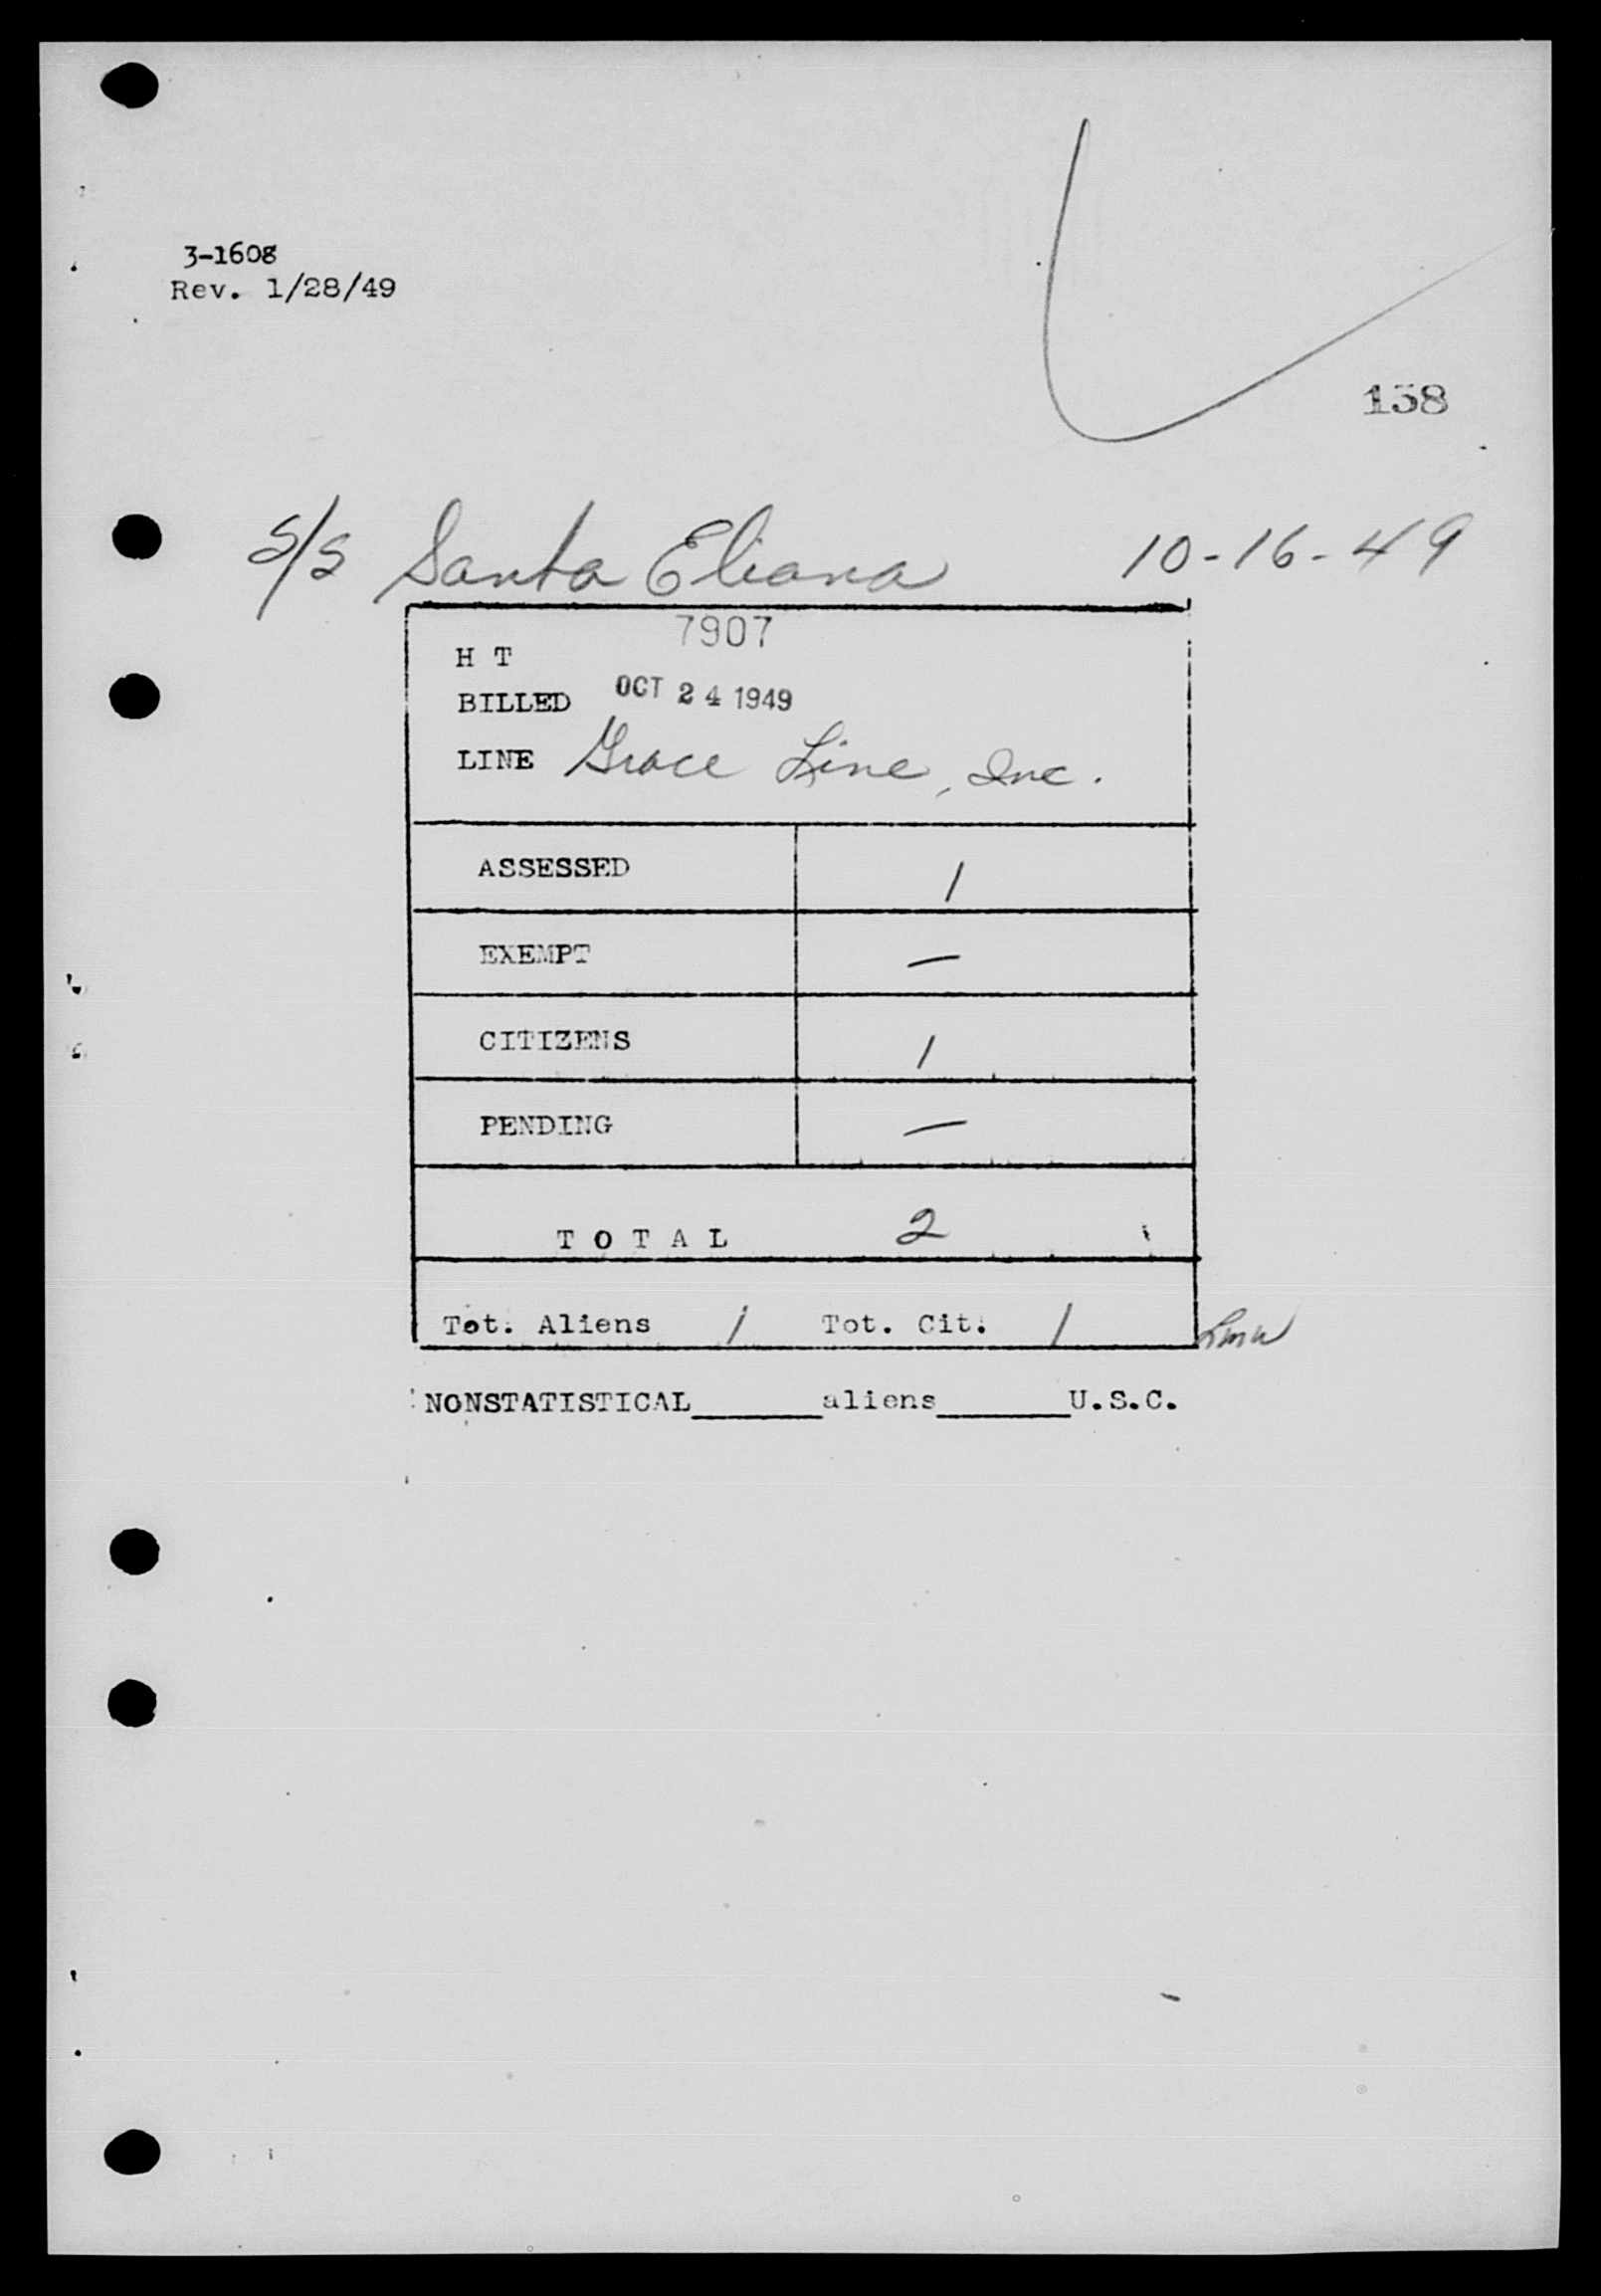 3-1608
Rev. 1/28/49
138
S/S Santa Eliana 10-16-49
7907
H T
BILLED OCT 24 1949
LINE Grace Line, Inc.
ASSESSED 1
EXEMPT —
CITIZENS 1
PENDING —
TOTAL 2
Tot. Aliens 1 Tot. Cit. 1
NONSTATISTICAL______aliens______U.S.C.